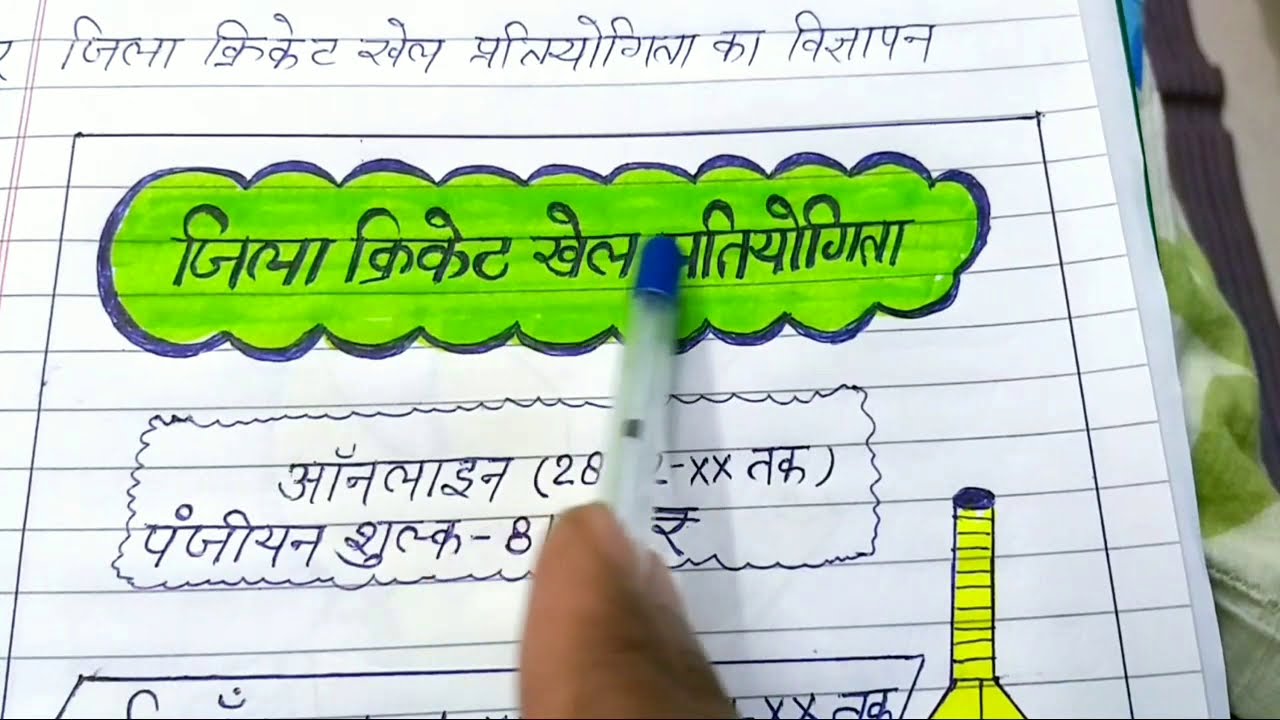 जिला क्रिकेट खेल प्रतियोगिता का विज्ञापन
जिला क्रिकेट खेल प्रतियोगिता
ऑनलाइन (28 -xx तक)
पंजीयन शुल्क- 8 ₹
-xx तक